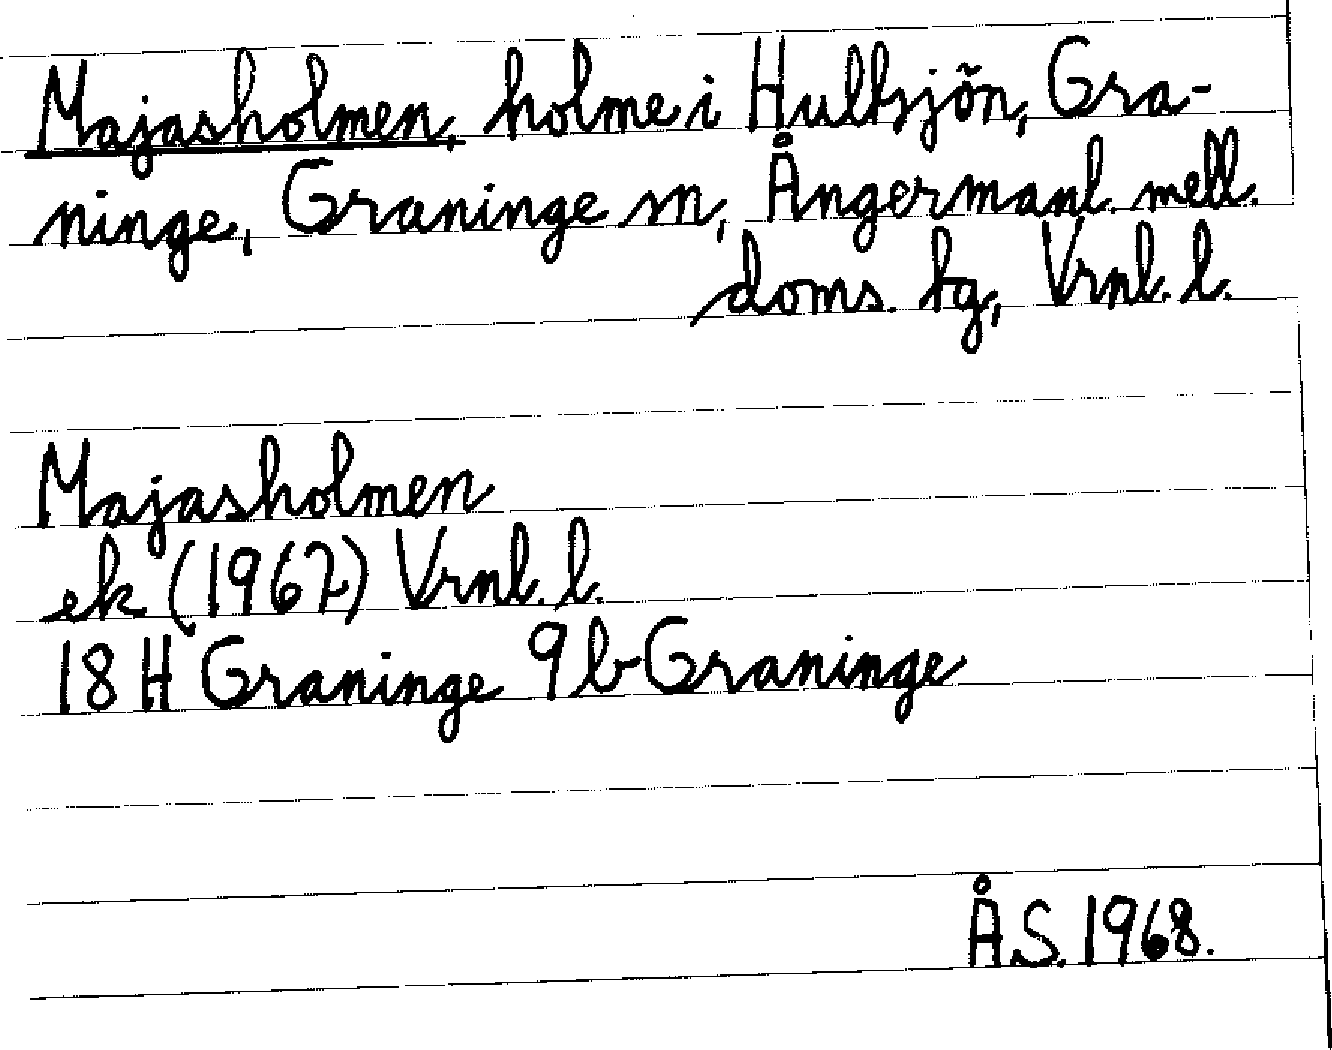 Majasholmen, holme i Hullsjön, Gra-
ninge, Graninge sn, Ångermanl. mell.
doms. hg, Vrnl. l.
Majasholmen
ek (1967) Vrnl. l.
18 H Graninge 9 b Graninge
Å.S. 1968.